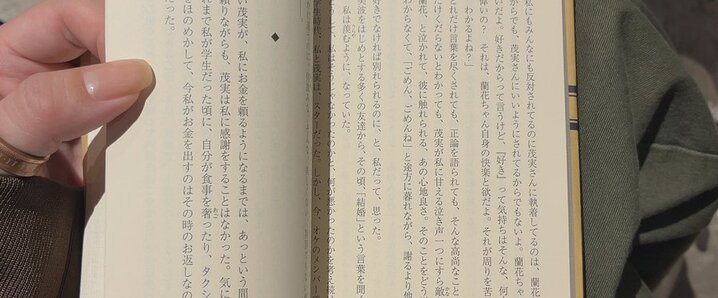 私にもみんなにも反対されてるのに茂実さんに執着してるのは、蘭花
からでも、茂実さんにいいようにされてるからでもないよ。蘭花ちゃ
いだよ。好きだからって言うけど、『好き』って気持ちはそんな、何
偉いの？　それは、蘭花ちゃん自身の快楽と欲だよ。それが周りを苦
わかるよね？」
どれだけ言葉を尽くされても、正論を語られても、そんな高尚なこと
だけくだらないとわかっても、茂実が私に甘える泣き声一つにすら敵
蘭花、と泣かれて、彼に触れられる、あの心地良さ。そのことをどう
わからなくて、「ごめん、ごめんね」と途方に暮れながら、謝るより他
好きでなければ別れられるのに、と、私だって、思った。
をはじめとする多くの友達から、その頃、「結婚」という言葉を聞
私は羨むように、なっていた。
じゃなかったのか、何が悪かったのかを考え
学生時代、私と茂実は、スターだった。しかし、今、オケのメンバーで
◆
い茂実が、私にお金を頼るようになるまでは、あっという間
頼りながらも、茂実は私に感謝をすることはなかった。気に
れまで私が学生だった頃に、自分が食事を奢ったり、タクシ
をほのめかして、今私がお金を出すのはその時のお返しなの
だった。